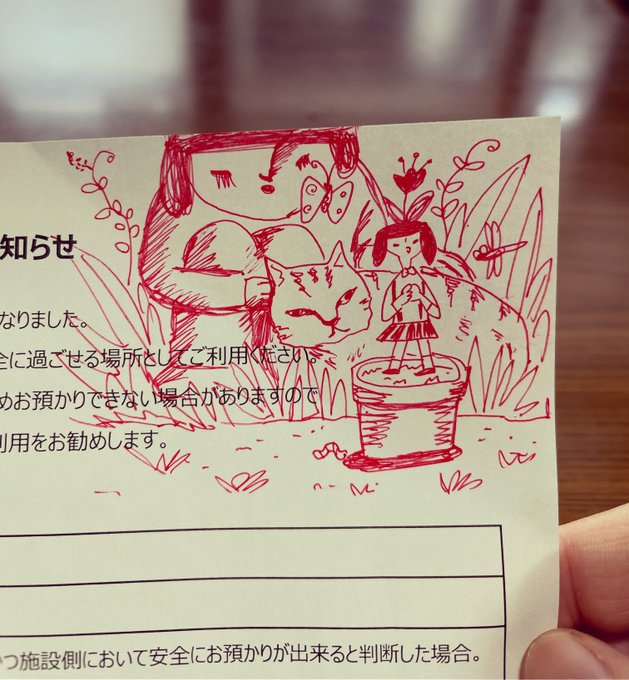 知らせ
なりました。
全に過ごせる場所としてご利用ください。
めお預かりできない場合がありますので
利用をお勧めします。
つ施設側において安全にお預かりが出来ると判断した場合。